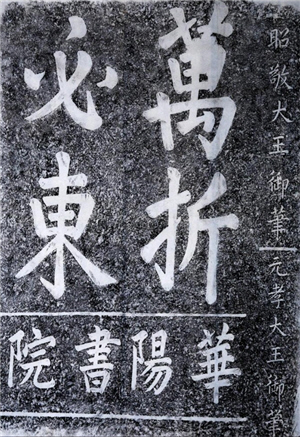 昭敬大王御筆
元孝大王御筆
萬折
必東
華陽書院